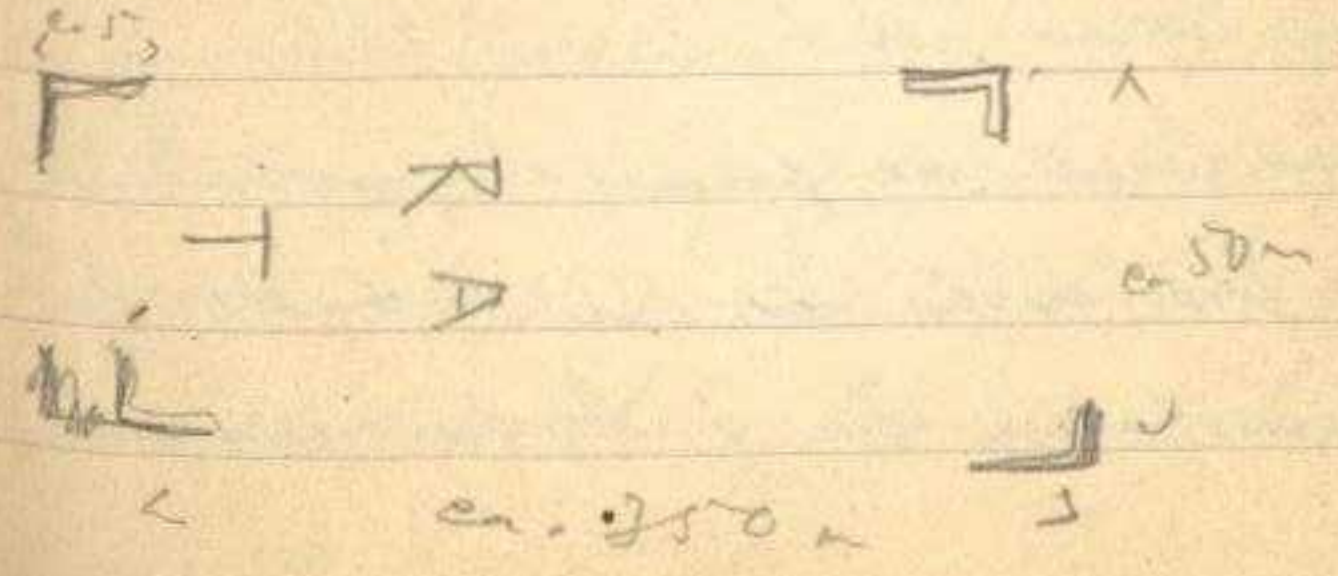 ca 5
R
T
A
ca 50 m
ca. 350 m